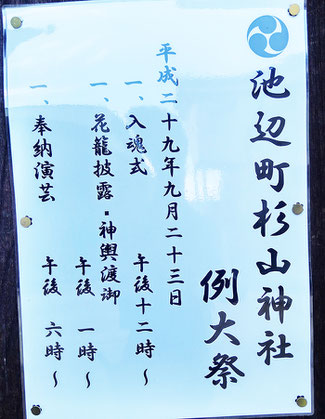 池辺町杉山神社
例大祭
平成二十九年九月二十三日
一、入魂式 午後十二時〜
一、花籠披露・神輿渡御 午後 一時〜
一、奉納演芸 午後 六時〜